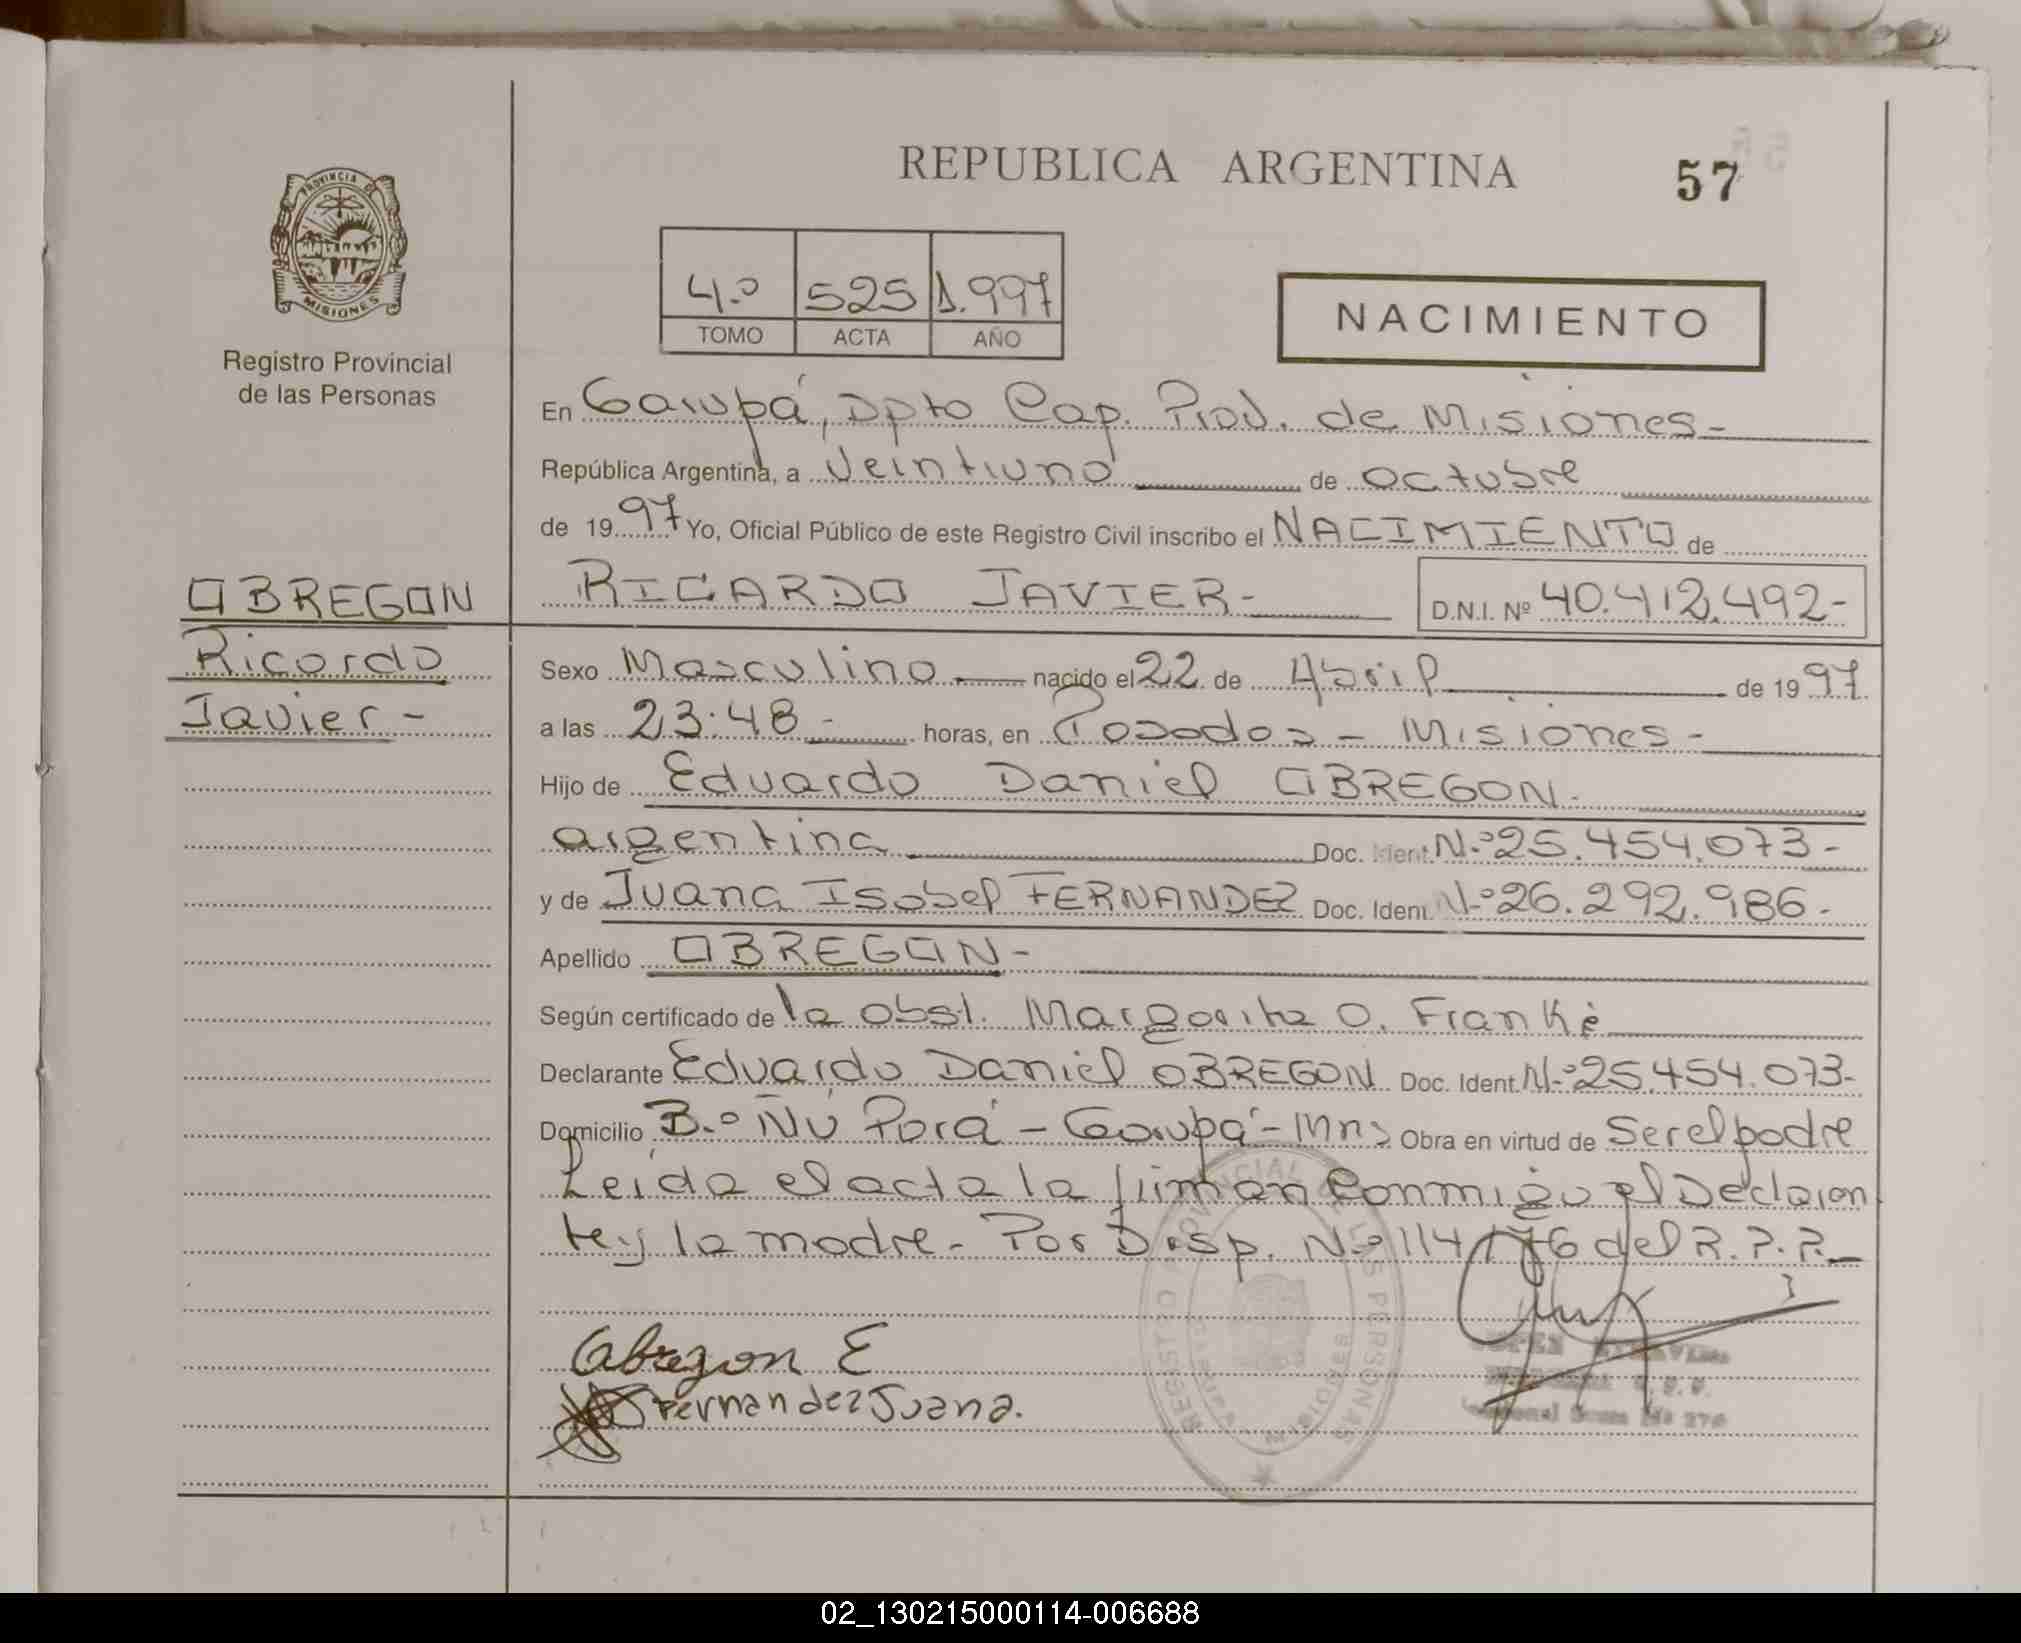 REPUBLICA ARGENTINA
57
PROVINCIA DE
MISIONES
Registro Provincial
de las Personas
4.º 525 1.997
TOMO ACTA AÑO
NACIMIENTO
En Garupá, Dpto Cap. Prov. de Misiones-
República Argentina, a Veintiuno de octubre
de 1997 Yo, Oficial Público de este Registro Civil inscribo el NACIMIENTO de
RICARDO JAVIER- D.N.I. Nº 40.412.492-
OBREGON
Ricardo
Javier-
Sexo Masculino nacido el 22 de Abril de 1997
a las 23:48- horas, en Posadas - Misiones-
Hijo de Eduardo Daniel OBREGON-
argentina Doc. Ident. N.º 25.454.073-
y de Juana Isabel FERNANDEZ Doc. Ident. N.º 26.292.986-
Apellido OBREGON-
Según certificado de la obst. Margarita O. Franké
Declarante Eduardo Daniel OBREGON Doc. Ident. N.º 25.454.073-
Domicilio B.º Ñú Porá - Garupá - Mns Obra en virtud de Ser el padre
Leída el acta la firman conmigo el Declaran
te y la madre- Por Disp. N.º 114/76 del R.P.P.
Obregon E
Fernandez Juana.
REGISTRO PROVINCIAL DE LAS PERSONAS
MISIONES
02_130215000114-006688